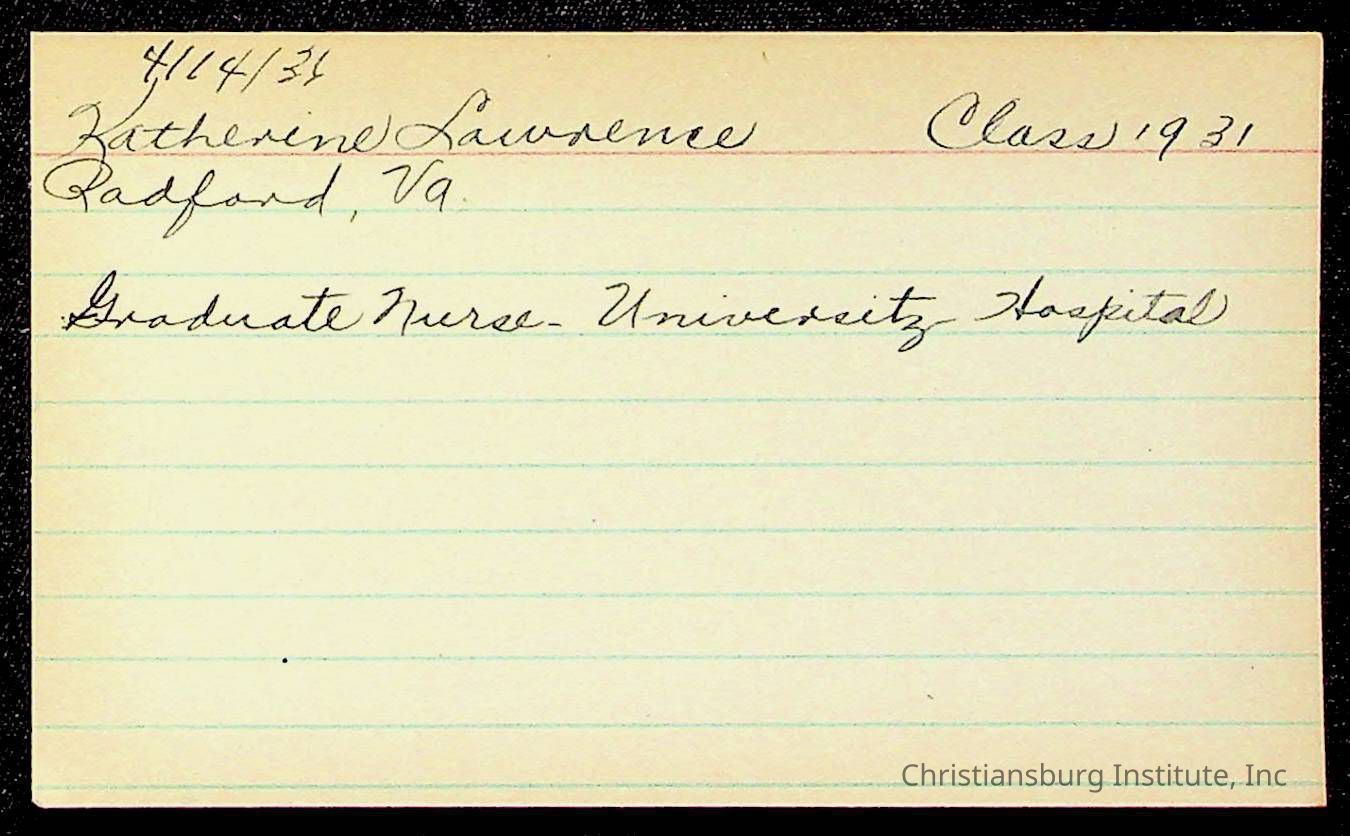 4/14/31
Katherine Lawrence Class 1931
Radford, Va.
Graduate Nurse - University Hospital
Christiansburg Institute, Inc